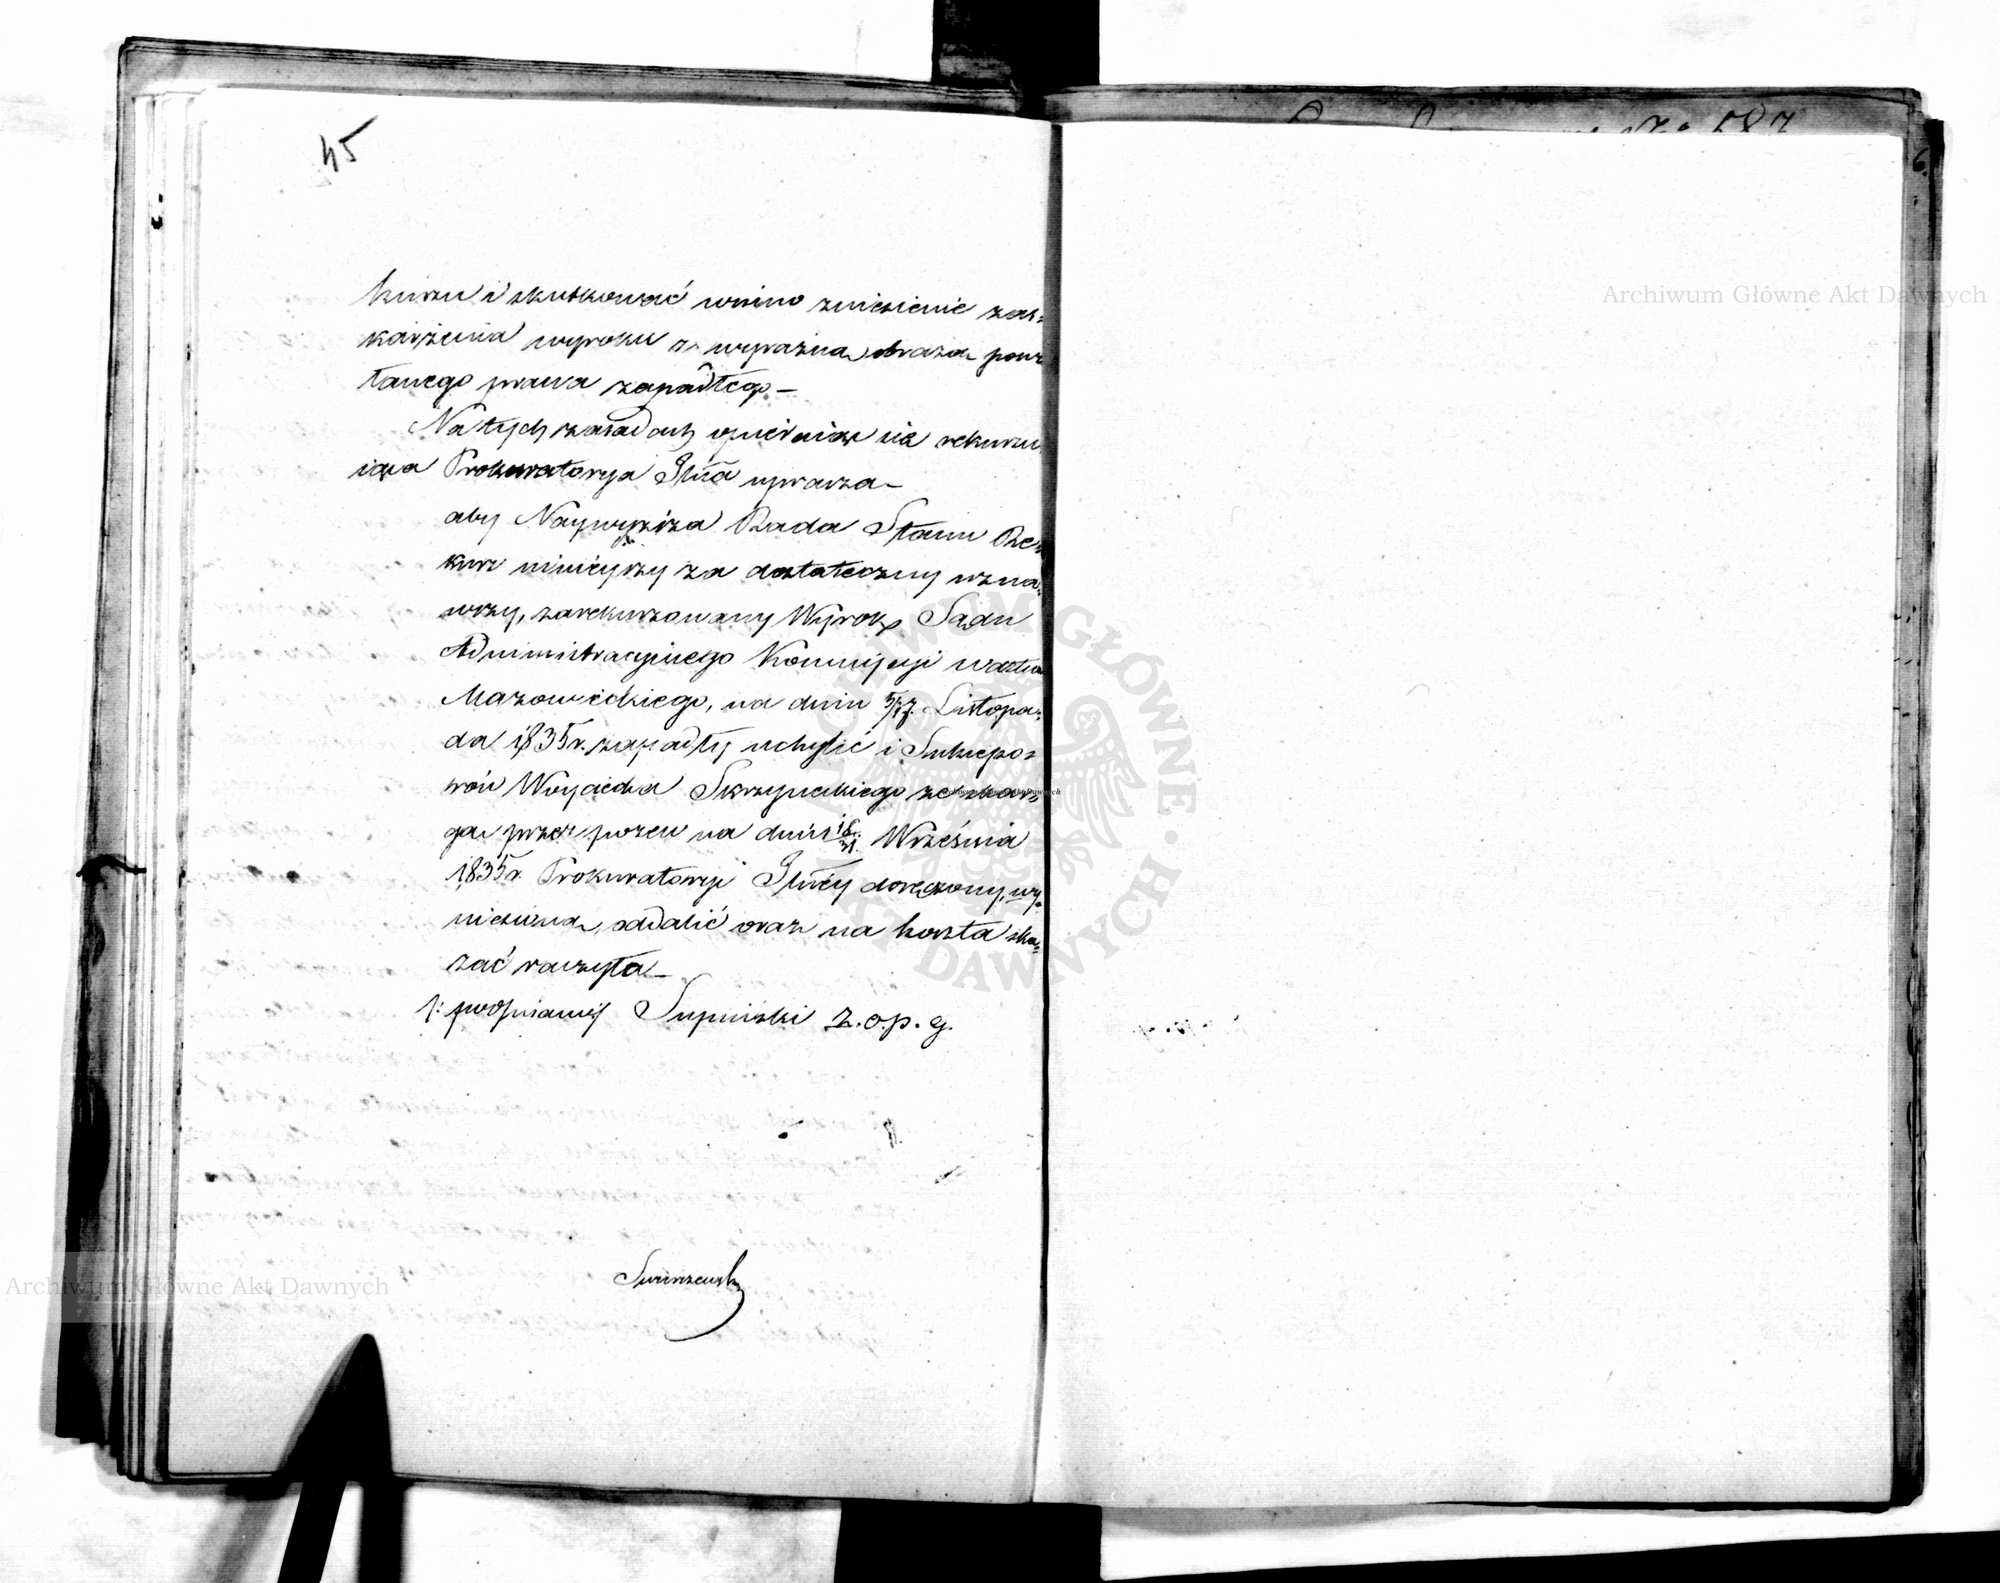 45
kursu i skutkować winno zniesienie zas-
karżenia wyroku z wyraźną obrazą powo
łanego prawa zapadłego –
Na tych zasadach opierając się rekursu
iąca Prokuratorya Glna uprasza –
aby Naywyższa Rada Stanu Re-
kurs ninieyszy za dostateczny uzna-
wszy, zarekursowany Wyrok Sądu
Administracyinego Kommissyi Wdztwa
Mazowieckiego, na dniu 5/17. Listopa-
da 1835 r. zapadły uchylić i Sukcesso-
rów Woyciecha Skrzyneckiego ze skar-
gą przez pozew na dniu Września
1835 r. Prokuratoryi Glney doręczony, wy-
niesioną, oddalić oraz na koszta ska-
zać raczyła –
/: podpisany/ Supiński Z.O.P.G.
Archiwum Główne Akt Dawnych
Archiwum Główne Akt Dawnych
ARCHIWUM GŁÓWNE AKT DAWNYCH